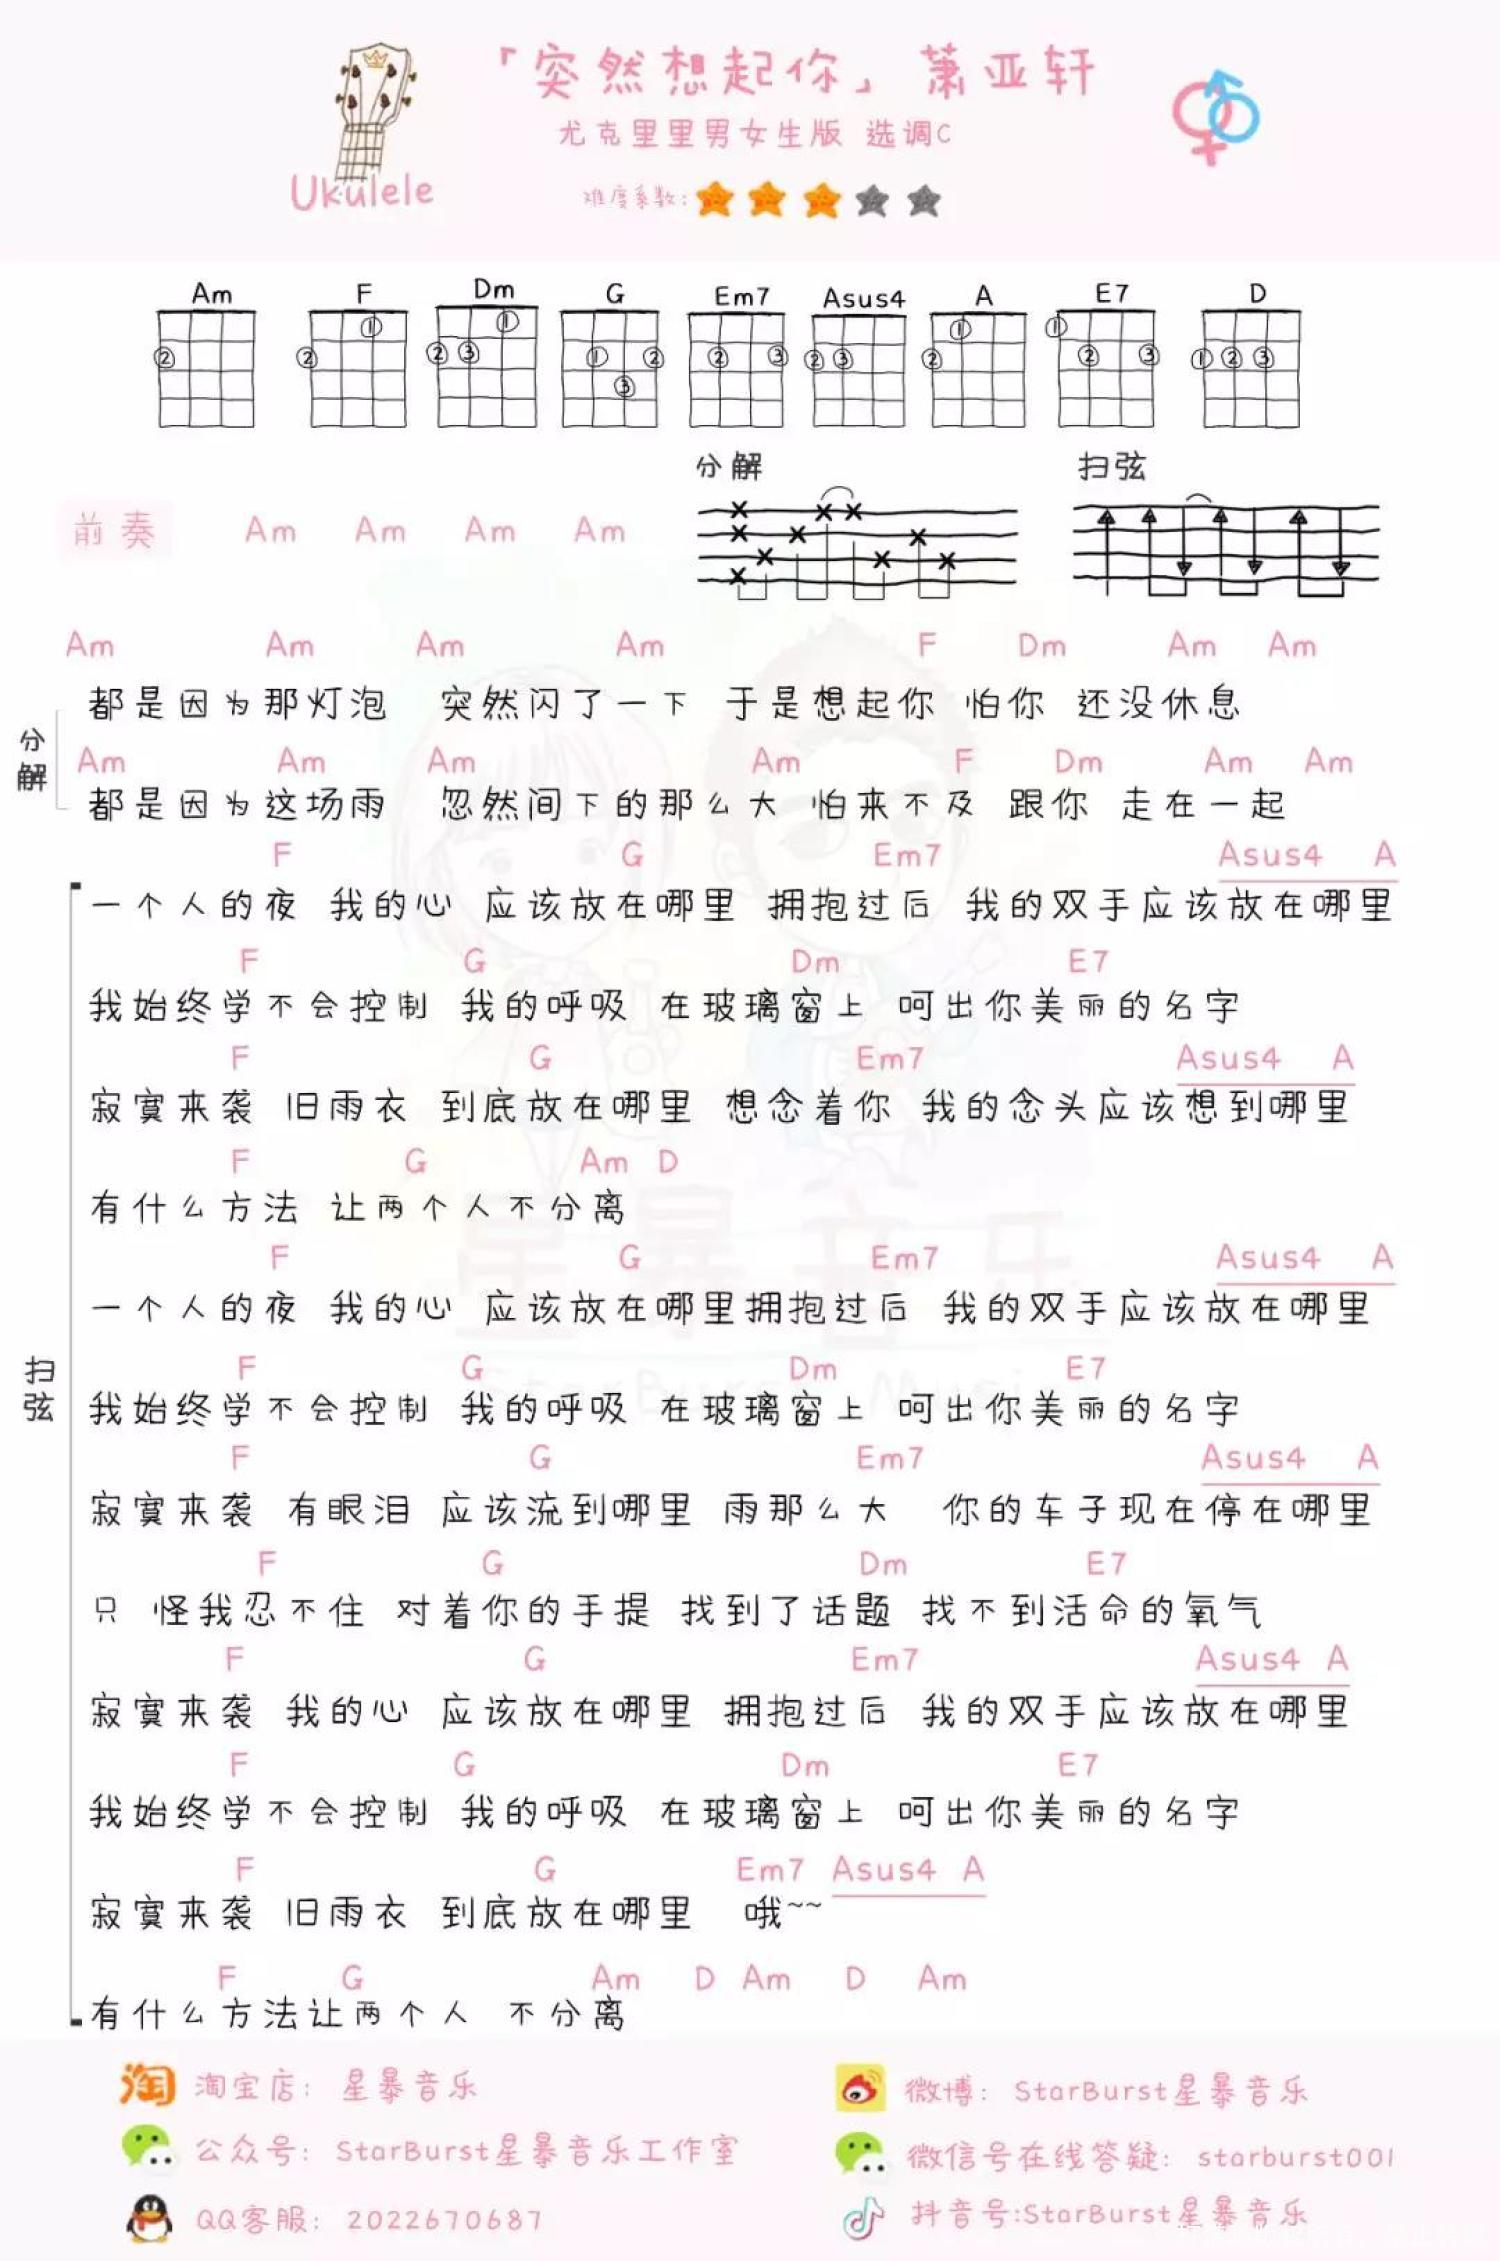 「突然想起你」 萧亚轩
尤克里里男女生版 选调C
Ukulele
难度系数:
Am F Dm G Em7 Asus4 A E7 D
② ② ① ② ③ ① ① ② ③ ② ③ ② ③ ② ① ① ② ③ ① ② ③
分解 扫弦
前奏 Am Am Am Am
Am Am Am Am F Dm Am Am
都是因为那灯泡 突然闪了一下 于是想起你 怕你 还没休息
分解
Am Am Am Am F Dm Am Am
都是因为这场雨 忽然间下的那么大 怕来不及 跟你 走在一起
F G Em7 Asus4 A
一个人的夜 我的心 应该放在哪里 拥抱过后 我的双手应该放在哪里
F G Dm E7
我始终学不会控制 我的呼吸 在玻璃窗上 呵出你美丽的名字
F G Em7 Asus4 A
寂寞来袭 旧雨衣 到底放在哪里 想念着你 我的念头应该想到哪里
F G Am D
有什么方法 让两个人不分离
F G Em7 Asus4 A
一个人的夜 我的心 应该放在哪里拥抱过后 我的双手应该放在哪里
扫弦
F G Dm E7
我始终学不会控制 我的呼吸 在玻璃窗上 呵出你美丽的名字
F G Em7 Asus4 A
寂寞来袭 有眼泪 应该流到哪里 雨那么大 你的车子现在停在哪里
F G Dm E7
只 怪我忍不住 对着你的手提 找到了话题 找不到活命的氧气
F G Em7 Asus4 A
寂寞来袭 我的心 应该放在哪里 拥抱过后 我的双手应该放在哪里
F G Dm E7
我始终学不会控制 我的呼吸 在玻璃窗上 呵出你美丽的名字
F G Em7 Asus4 A
寂寞来袭 旧雨衣 到底放在哪里 哦~~
F G Am D Am D Am
有什么方法让两个人 不分离
星暴音乐
StarBurst Musi
淘 淘宝店: 星暴音乐
微博: StarBurst星暴音乐
公众号: StarBurst星暴音乐工作室
微信号在线答疑: starburst001
QQ客服: 2022670687
抖音号:StarBurst星暴音乐